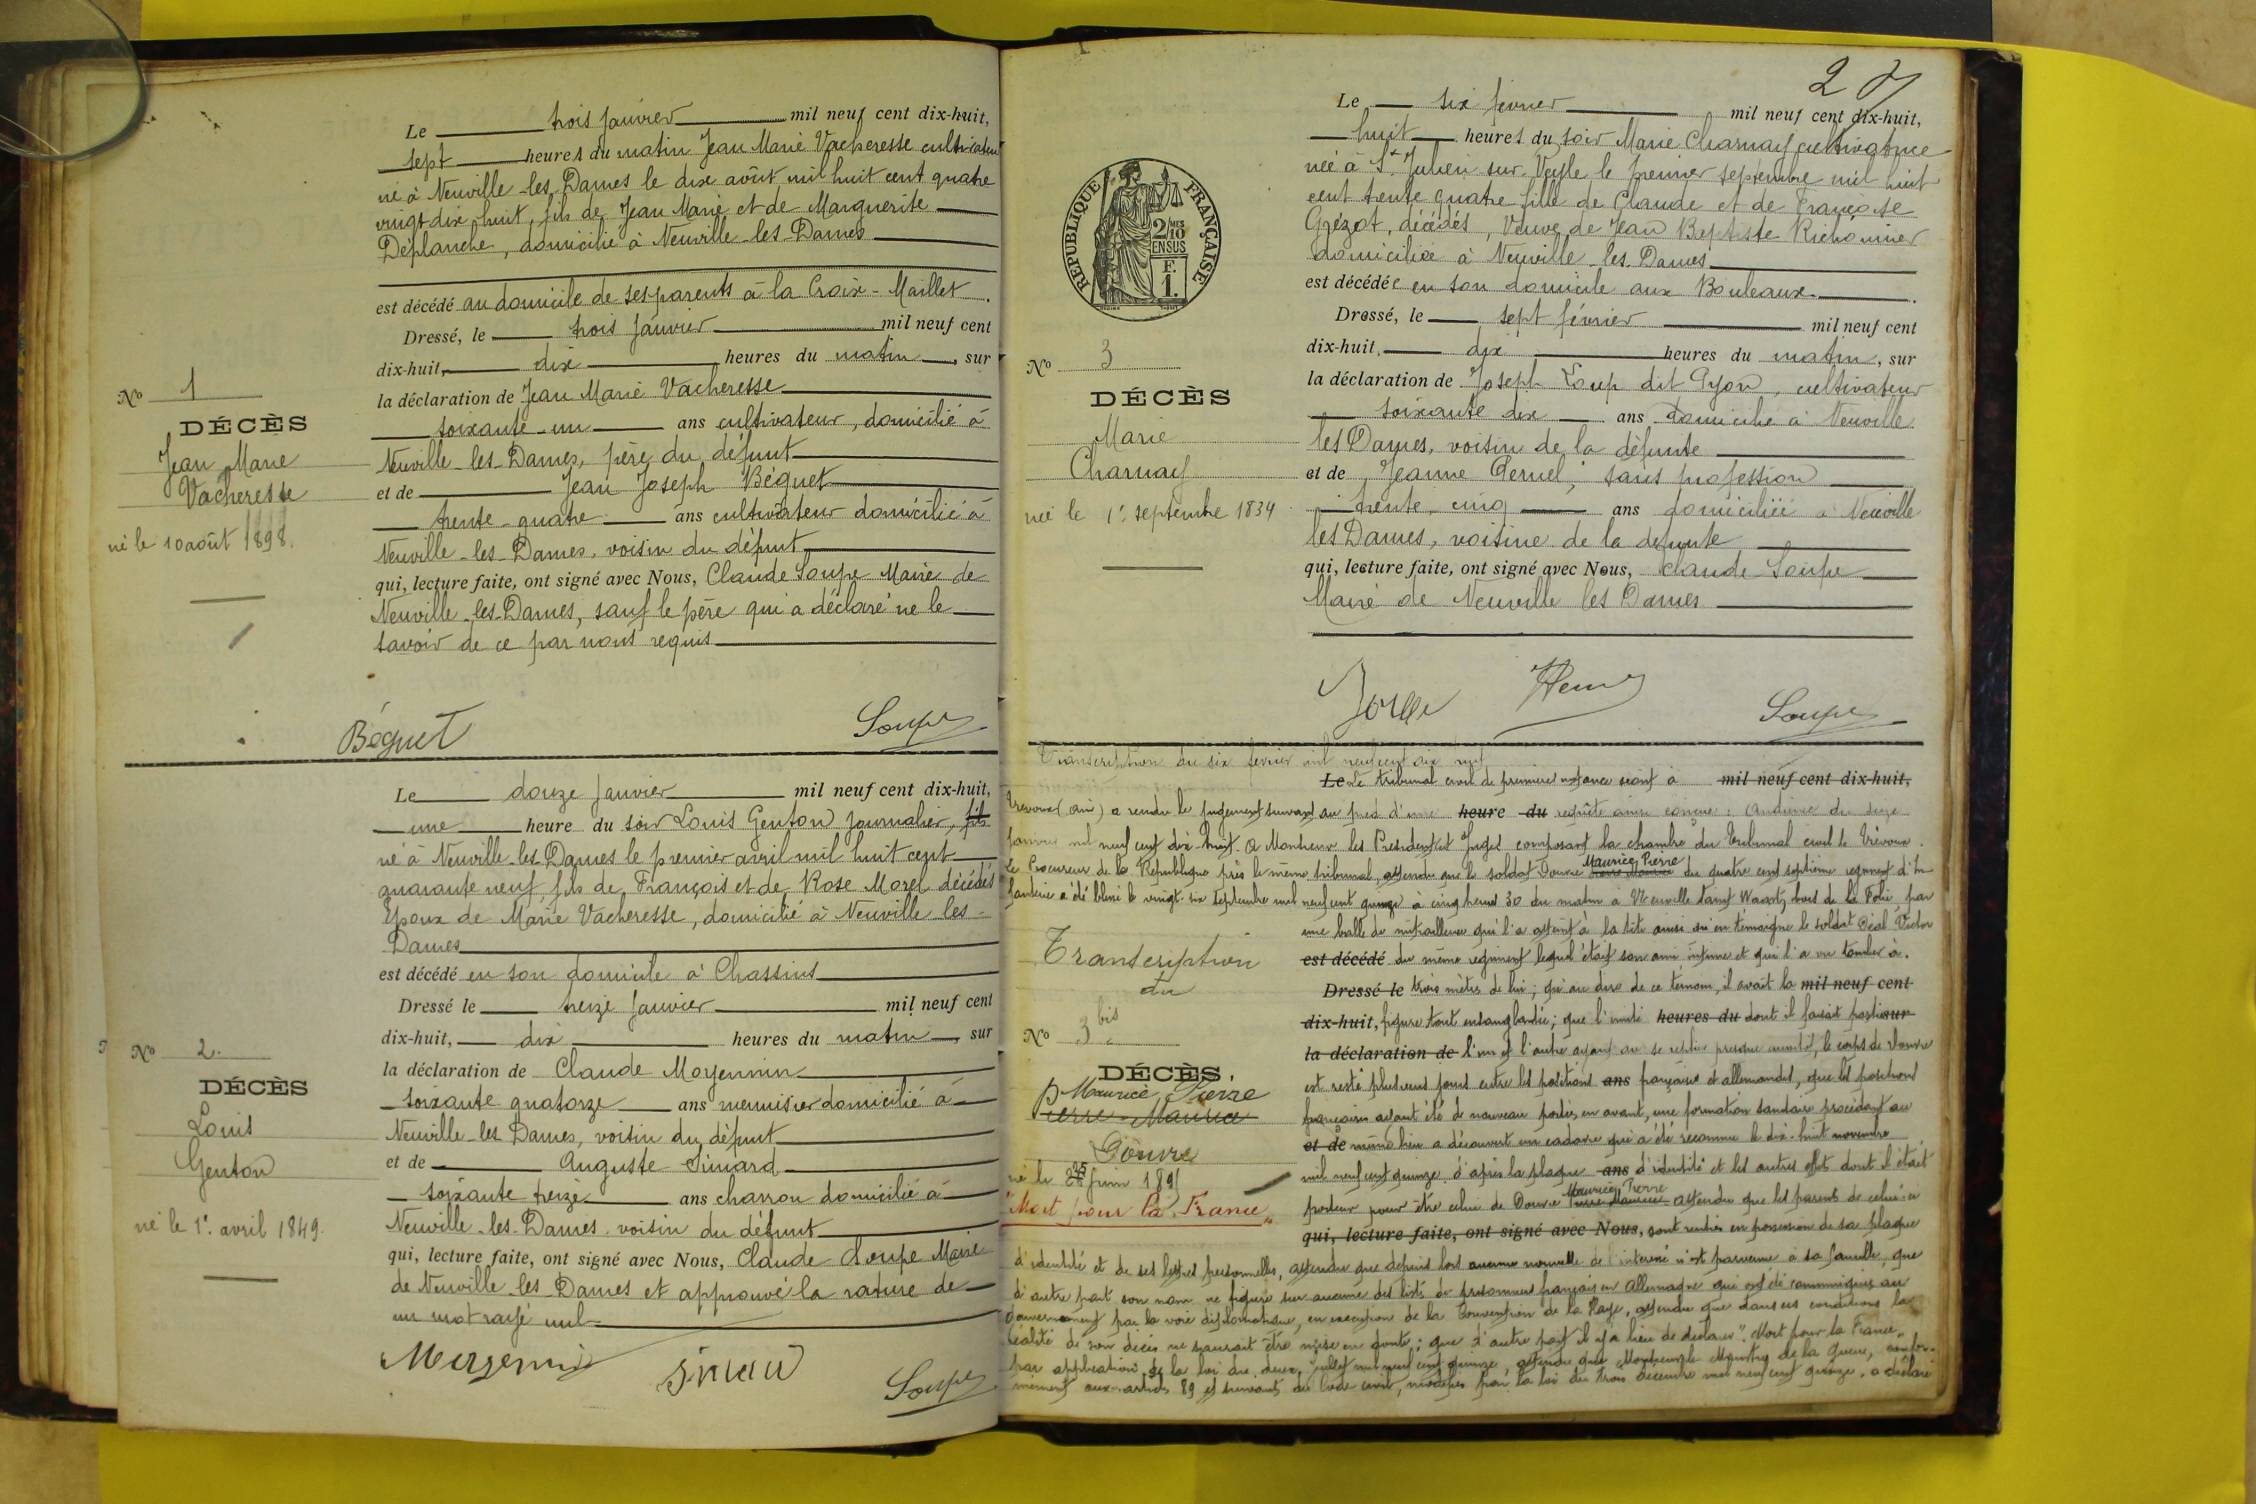 Le trois janvier mil neuf cent dix-huit,
sept heures du matin Jean Marie Vacheresse cultivateur
né à Neuville-les-Dames le dix août mil huit cent quatre
vingt dix huit, fils de Jean Marie et de Marguerite
Déplanche, domicilié à Neuville-les-Dames
est décédé au domicile de ses parents à la Croix-Maillet.
Dressé, le trois janvier mil neuf cent
dix-huit, dix heures du matin, sur
No 1
la déclaration de Jean Marie Vacheresse
DÉCÈS
soixante-un ans cultivateur, domicilié à
Jean Marie
Neuville-les-Dames, père du défunt
Vacheresse
et de Jean Joseph Béguet
trente-quatre ans cultivateur domicilié à
né le 10 août 1898.
Neuville-les-Dames, voisin du défunt
qui, lecture faite, ont signé avec Nous, Claude Soupe Maire de
Neuville-les-Dames, sauf le père qui a déclaré ne le
savoir de ce par nous requis
Béguet Soupe
Le douze janvier mil neuf cent dix-huit,
une heure du soir Louis Genton journalier, fils
né à Neuville-les-Dames le premier avril mil huit cent
quarante neuf, fils de François et de Rose Morel décédés
Epoux de Marie Vacheresse, domicilié à Neuville-les-
Dames
est décédé en son domicile à Chassins
Dressé le treize janvier mil neuf cent
dix-huit, dix heures du matin, sur
No 2.
la déclaration de Claude Moyennin
DÉCÈS
soixante quatorze ans menuisier domicilié à
Louis
Neuville-les-Dames, voisin du défunt
Genton
et de Auguste Sinard
soixante treize ans charron domicilié à
né le 1er avril 1849.
Neuville-les-Dames voisin du défunt
qui, lecture faite, ont signé avec Nous, Claude Soupe Maire
de Neuville-les-Dames et approuvé la rature de
un mot rayé nul
Soupe
2
Le six février mil neuf cent dix-huit,
huit heures du soir Marie Charnay cultivatrice
née à St Julien sur Veyle le premier septembre mil huit
cent trente quatre fille de Claude et de Françoise
Grézot, décédés, Veuve de Jean Baptiste Richonnier
domiciliée à Neuville-les-Dames
RÉPUBLIQUE FRANÇAISE
2/10
EN SUS
F.
1.
est décédée en son domicile aux Bouleaux.
Dressé, le sept février mil neuf cent
dix-huit, dix heures du matin, sur
No 3
la déclaration de Joseph Loup dit Gyon, cultivateur
DÉCÈS
soixante dix ans domicilié à Neuville
Marie
les Dames, voisin de la défunte
Charnay
et de Jeanne Pernel, sans profession
née le 1er septembre 1834
trente cinq ans domiciliée à Neuville
les Dames, voisine de la défunte
qui, lecture faite, ont signé avec Nous, Claude Soupe
Maire de Neuville les Dames
Soupe
Transcription du six février mil neuf cent dix huit
Le Le tribunal civil de première instance séant à mil neuf cent dix-huit,
Trévoux (ain) a rendu le jugement suivant au pied d'une heure du requête ainsi conçue: Audience du
janvier mil neuf cent dix-huit. A Monsieur les Président et Juges composant la chambre du Tribunal civil de Trévoux.
Le Procureur de la République près le même tribunal, attendu que le soldat Douvre Maurice Pierre du quatre cent septième régiment d'In
fanterie a été blessé le vingt-six septembre mil neuf cent quinze à cinq heures 30 du matin à Neuville Saint Waast, bois de la Folie, par
une balle de mitrailleuse qui l'a atteint à la tête ainsi qu'en témoigne le soldat Victor
Transcription
est décédé du même régiment lequel était son ami intime et qui l'a vu tomber à.
du
Dressé le trois mètres de lui; qu'au dire de ce témoin, il avait la mil neuf cent
No 3 bis
dix-huit, figure tout ensanglantée; que l'unité heures du dont il faisait partie sur
la déclaration de l'un et l'autre ayant dû se replier presque aussitôt, le corps de Douvre
DÉCÈS
est resté plusieurs jours entre les positions ans françaises et allemandes, que les positions
Maurice, Pierre
françaises ayant été de nouveau portées en avant, une formation sanitaire procédant au
Pierre-Maurice
et de même lieu a découvert un cadavre qui a été reconnu le dix-huit novembre
Douvre
mil neuf cent quinze d'après la plaque ans d'identité et les autres effets dont il était
né le 25 juin 1891
porteur pour être celui de Douvre Maurice Pierre attendu que les parents de celui-ci
"Mort pour la France"
qui, lecture faite, ont signé avec Nous, sont rentrés en possession de sa plaque
d'identité et de ses lettres personnelles, attendu que depuis lors aucune nouvelle de l'interné n'est parvenue à sa famille, que
d'autre part son nom ne figure sur aucune des listes de prisonniers français en Allemagne qui ont été communiquées au
Gouvernement par la voie diplomatique, en exécution de la Convention de la Haye, attendu que dans ces conditions la
réalité de son décès ne saurait être mise en doute; que d'autre part il y a lieu de déclarer "Mort pour la France"
par application de la loi du deux juillet mil neuf cent quinze, attendu que Monsieur le Ministre de la Guerre, confor-
mément aux articles 89 et suivants du Code civil, modifiés par la loi du trois décembre mil neuf cent quinze, a déclaré